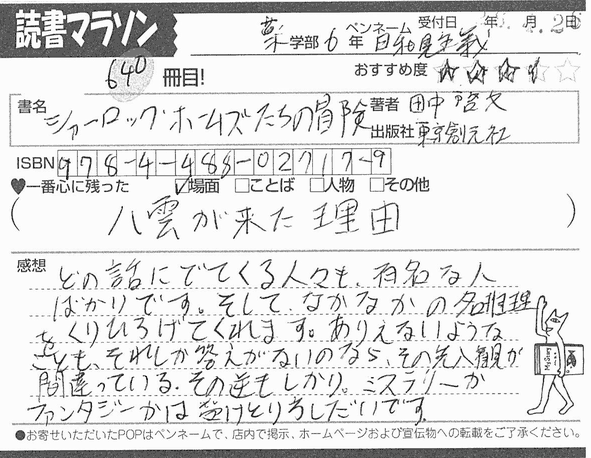 読書マラソン
薬学部 6年 ペンネーム 日和見主義 受付日 年 月 日
640冊目!
おすすめ度
書名 シャーロック・ホームズたちの冒険 著者 田中啓文
出版社 東京創元社
ISBN 978-4-488-02717-9
♥一番心に残った ☑場面 □ことば □人物 □その他
(八雲が来た理由)
感想
どの話にでてくる人々も、有名な人
ばかりです。そして、なかなかの名推理
をくりひろげてくれます。ありえないような
ことも、それしか答えがないのなら、その先入観が
間違っている。その逆もしかり。ミステリーか
ファンタジーかは受けとり方しだいです。
●お寄せいただいたPOPはペンネームで、店内で掲示、ホームページおよび宣伝物への転載をご了承ください。